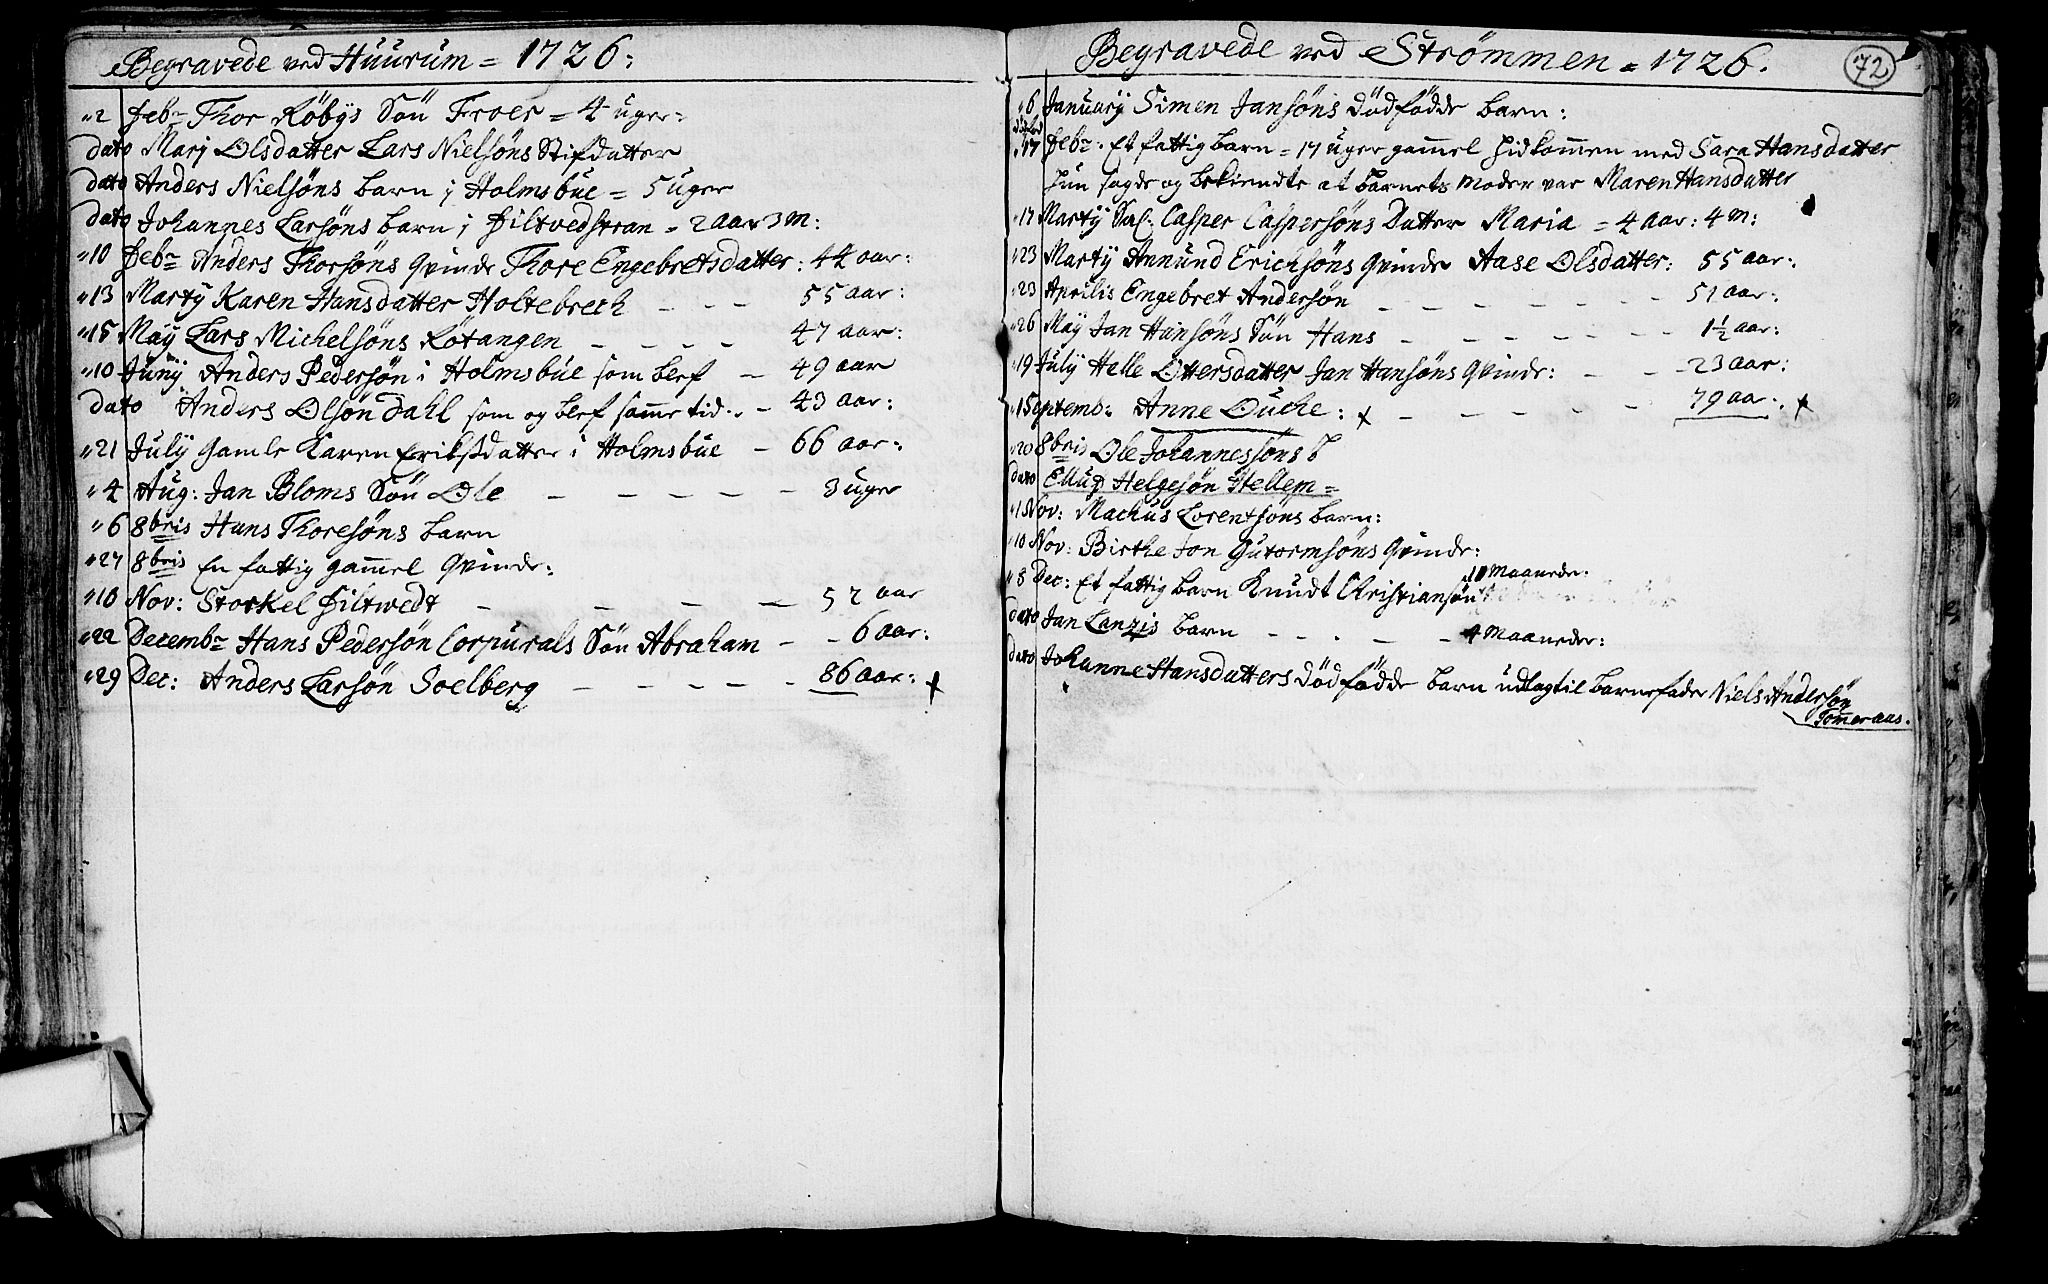 Begravede ved Huurum = 1726:
"2 febr Thor Röbÿs Sön Troer = 4 uger:
dato Marj Olsdatter Lars Nielsöns Stifdatter
dato Anders Nielsöns barn j Holmsbue = 5 uger
dato Johannes Larsöns barn j Filtvedstran = 2 aar 3 m:
"10 febr Anders Thorsöns qvinde Thore Engebretsdatter: 44 aar:
"13 Martÿ Karen Hansdatter Holtebrech - - - 55 aar:
"15 Maÿ Lars Michelsöns Rötangen - - - - 47 aar:
"10 Junÿ Anders Pedersön i Holmsbue som blef - 49 aar
dato Anders Olsön Dahl som og blef samme tid - 43 aar:
"21 Julÿ Gamle Karen Eriksdatter i Holmsbue - 66 aar:
"4 Aug: Jan Bloms Sön Ole - - - - - 3 uger
"6 8bris Hans Thoresöns barn
"27 8bris En fattig gammel qvinde:
"10 Nov: Storkel Filtwedt - - - - 52 aar
"22 Decembr Hans Pedersön Corpurals Sön Abraham - - 6 aar:
"29 Dec: Anders Larsön Soelberg - - - - - 86 aar: +
Begravede ved Strömmen = 1726.
72
"6 Januarÿ Simen Jansöns dödfödde barn:
"17 febr. Et fattig barn = 17 uger gammel hidkommen med Sara Hansdatter
hun sagde og bekiendte at barnets moder var Maren Hansdatter
"17 Martÿ Sal. Casper Caspersöns Datter Maria = 4 aar: 4 m:
"23 Martÿ Annund Erichsöns qvinde Aase Olsdatter: 55 aar:
"23 Aprilis Engebret Andersön - - - - - - 51 aar:
"26 Maÿ Jan Hansöns Sön Hans - - - - - - 1½ aar:
"19 Julÿ Helle Ottersdatter Jan Hansöns qvinde: - - - 23 aar:
"1 Septemb: Anne Duche: + - - - - - 79 aar. +
"20 8bris Ole Johannessöns b
dato Ellug Helgesön Hellem =
"1 Nov: Machus Lorentsöns barn:
"10 Nov: Birthe Jon Gutormsöns qvinde:
"8 Dec: Et fattig barn Knudt Christiansön 10 Maaneder:
dato Jan Lanzis barn - - - - - 4 Maaneder:
dato Johanne Hansdatters dödfödde barn udlagt til barnefader Niels Andersön
Tömeraas.